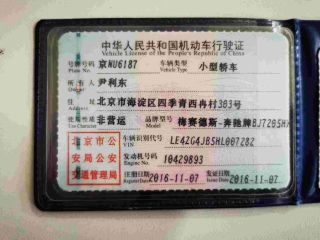 中华人民共和国机动车行驶证
Vehicle License of the People's Republic of China
号牌号码 京NU6187 车辆类型 小型轿车
Plate No. Vehicle Type
所有人 尹利东
Owner
住址 北京市海淀区四季青西冉村303号
Address
使用性质 非营运 品牌型号 梅赛德斯-奔驰牌BJ7205H
Use Character Model
北京市公安局公安交通管理局
车辆识别代号 LE4ZG4JB5HL007282
VIN
发动机号码 10429893
Engine No.
注册日期 2016-11-07 发证日期 2016-11-07
Register Date Issue Date